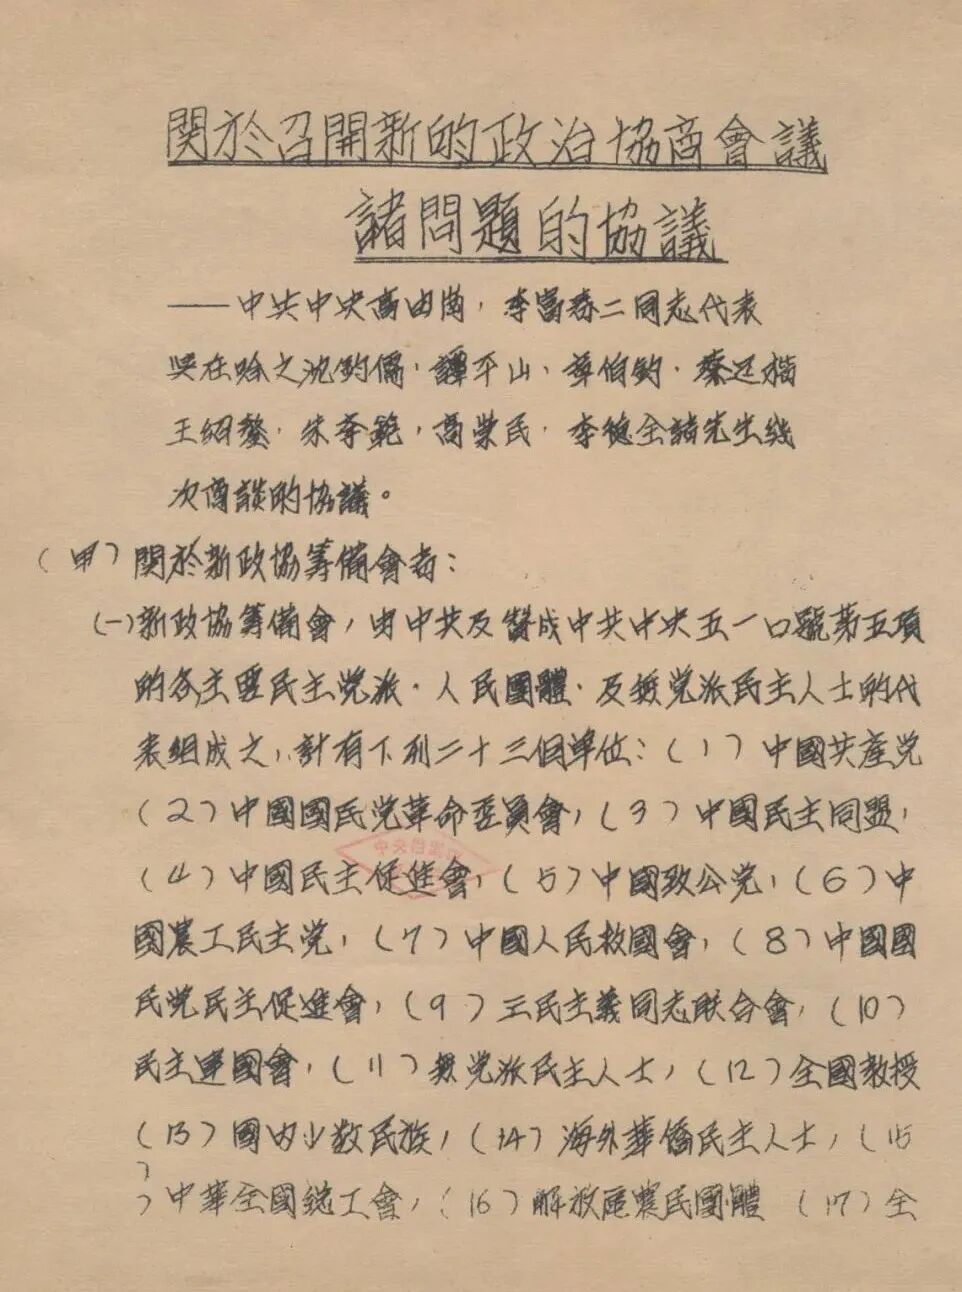 関於召開新的政治協商會議
諸問題的協議
——中共中央高岗，李富春二同志代表
吳在哈之沈鈞儒，譚平山、章伯鈞．蔡廷楷
王紹鏊．朱学範，高崇民．李德全諸先生幾
次商談的協議。
（甲）関於新政協筹備會者：
（一）新政協筹備會，由中共及贊成中共中央五一口號第五項
的各主要民主党派．人民團體．及無党派民主人士的代
表組成之，計有下列二十三個單位：（1）中國共產党
（2）中國國民党革命委員會，（3）中國民主同盟，
（4）中國民主促進會，（5）中國致公党，（6）中
國農工民主党，（7）中國人民救國會，（8）中國國
民党民主促進會，（9）三民主義同志联合會，（10）
民主建國會，（11）無党派民主人士，（12）全國教授
（13）國内少数民族，（14）海外華僑民主人士，（15
）中華全國総工會，（16）解放區農民團體（17）全